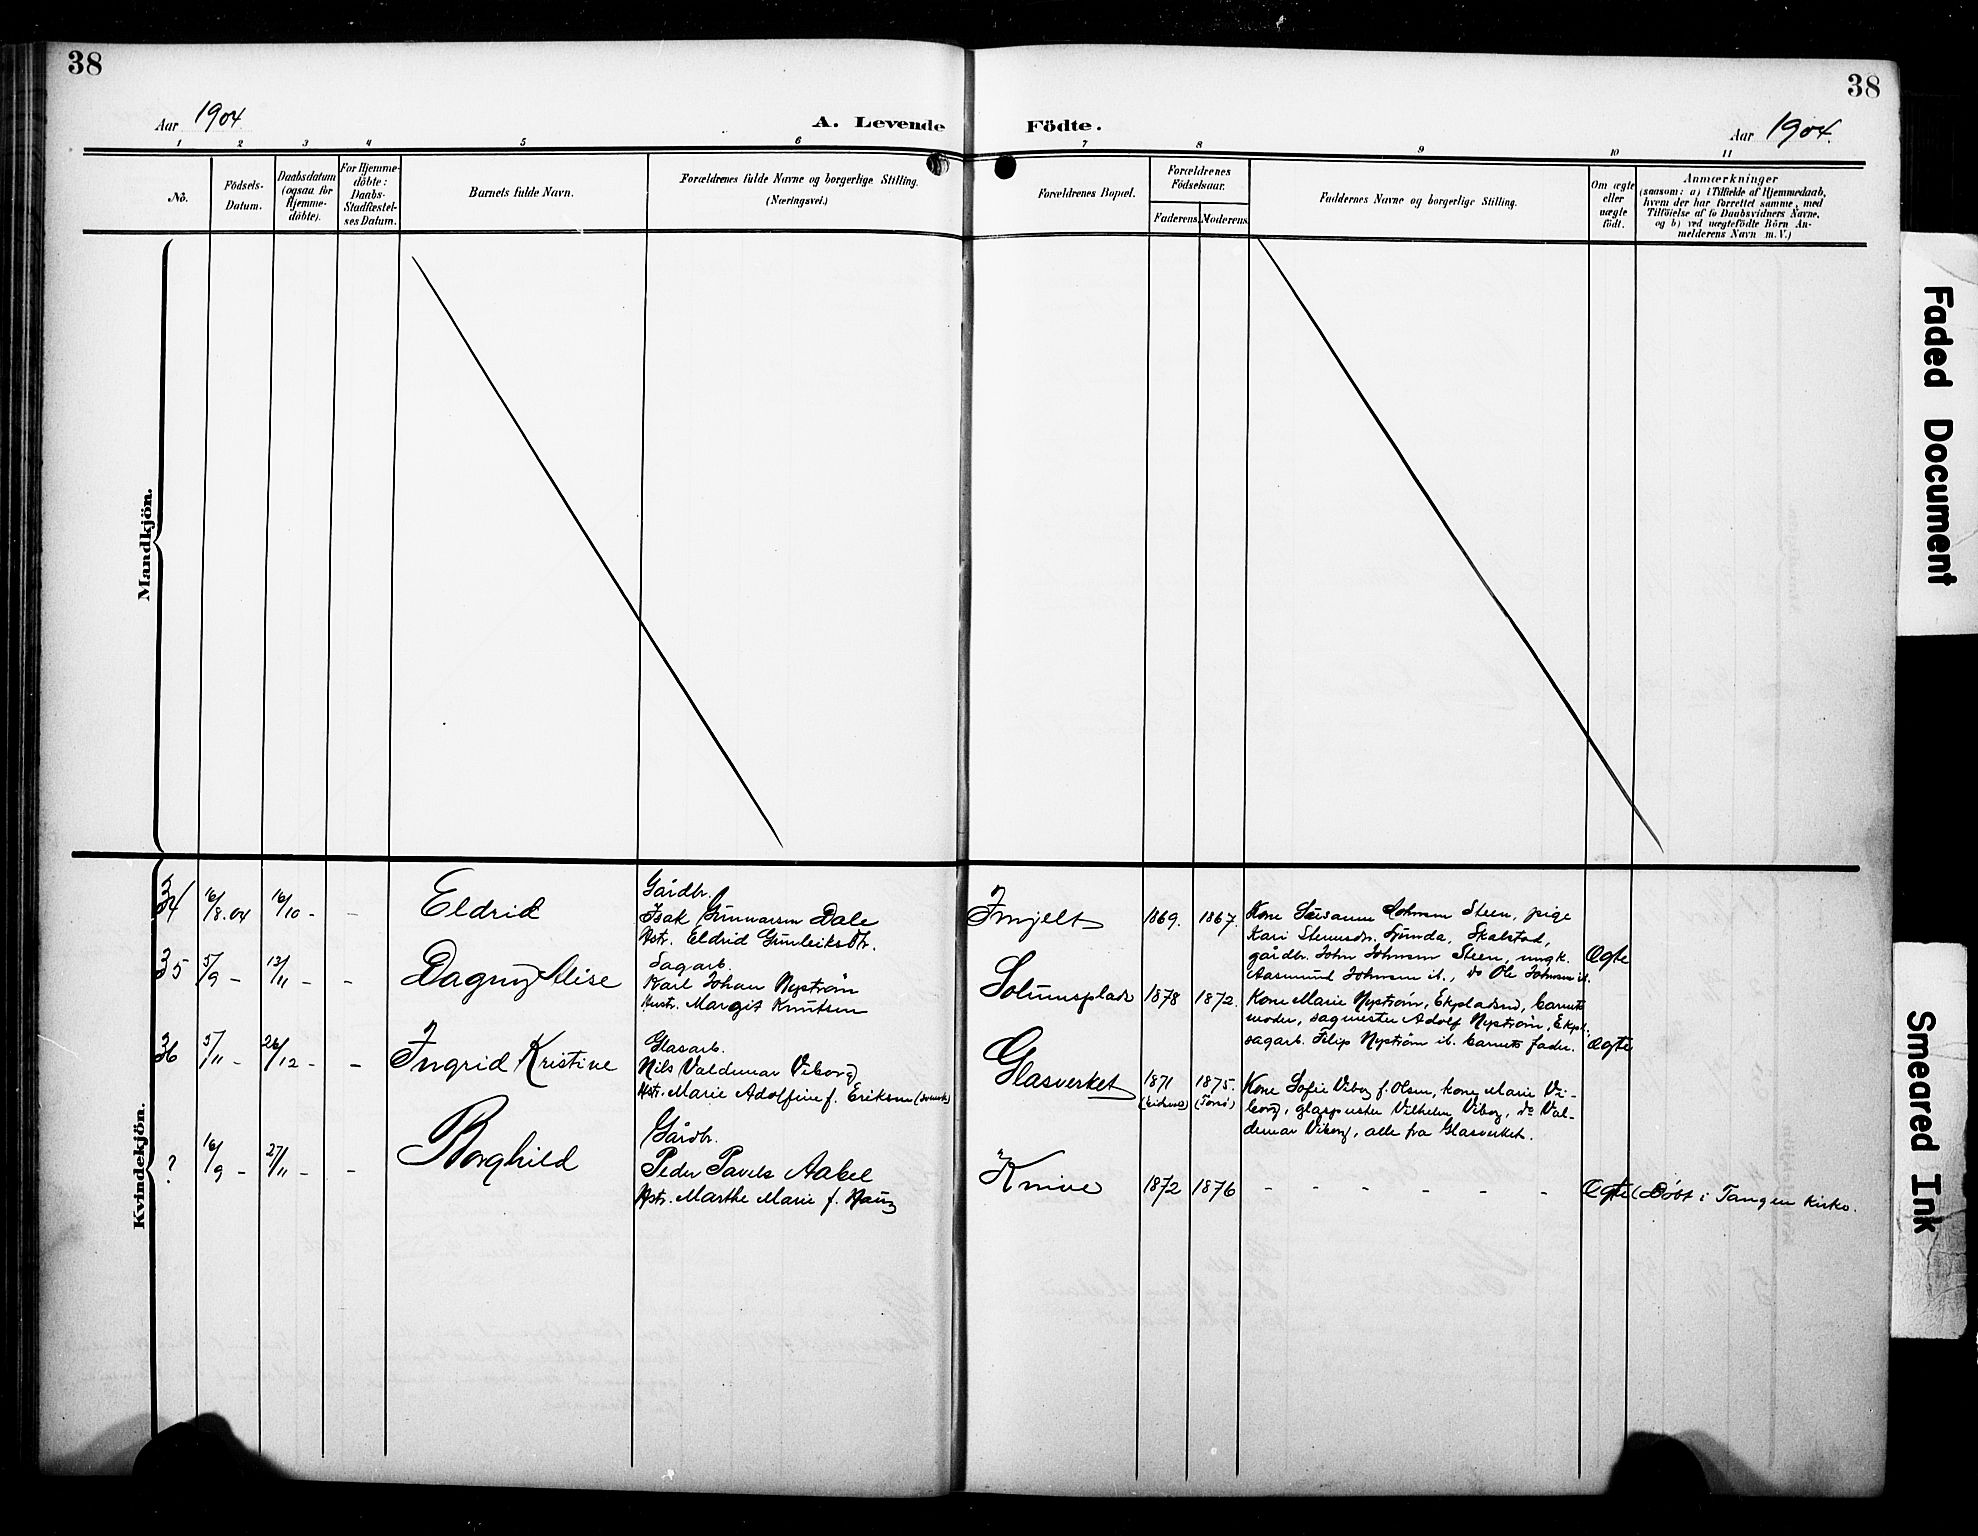 38
38
Aar 1904.
A. Levende Födte.
Aar 1904.
1 2 3 4 5 6 7 8 9 10 11
No.
Födsels-
Datum.
Daabsdatum
(ogsaa for
Hjemme-
döbte).
For Hjemme-
döbte:
Daabs-
Stadfæstel-
ses Datum.
Barnets fulde Navn.
Forældrenes fulde Navne og borgerlige Stilling.
(Næringsvei.)
Forældrenes Bopæl.
Forældrenes
Födselsaar.
Faderens. Moderens.
Faddernes Navne og borgerlige Stilling.
Om ægte
eller
uægte
födt.
Anmærkninger
(saasom: a) i Tilfælde af Hjemmedaab,
hvem der har forrettet samme, med
Tilföielse af to Daabsvidners Navne,
og b) ved uægtefödte Börn An-
melderens Navn m. V.)
Mandkjön.
Kvindekjön.
34 16/8.04 16/10 - - Eldrid
Gårdbr.
Isak Gunnarsen Dale
Hstr. Eldrid Gunleiksdtr.
1869. 1867.
Kone Susanne Johnsen Steen, pige
Kari Stensdr. Skalstad,
gårdbr. John Johnsen Steen, ungk.
Aasmund Johnsen ib., do Ole Johnsen ib.
Ægte
35 5/9 - 13/11 - - Dagny Alise
Sagarb.
Karl Johan Nystrøm
Hustr. Margit Knutsen
Solumsplads 1878 1872.
Kone Marie Nystrøm, Ekpladsen, barnets
moder, sagmester Adolf Nystrøm,
sagarb. Filip Nystrøm ib. barnets fader.
Ægte
36 5/11 - 26/12 - - Ingrid Kristine
Glasarb.
Nils Valdemar Viborg
Hstr. Marie Adolfine f. Eriksen (svensk)
Glasverket 1871 1875.
Kone Sofie Viborg f. Olsen, kone Marie Vi-
borg, glaspuster Vilhelm Viborg, do Val-
demar Viborg, alle fra Glasverket.
? 16/9 - 27/11 - - Borghild
Gårdbr.
Peder Pavels Aabel
Hstr. Marthe Marie f. Haug
Knive 1872 1876 - - - - - - Ægte (Døbt i Tangen Kirke.
Faded Document
Smeared Ink